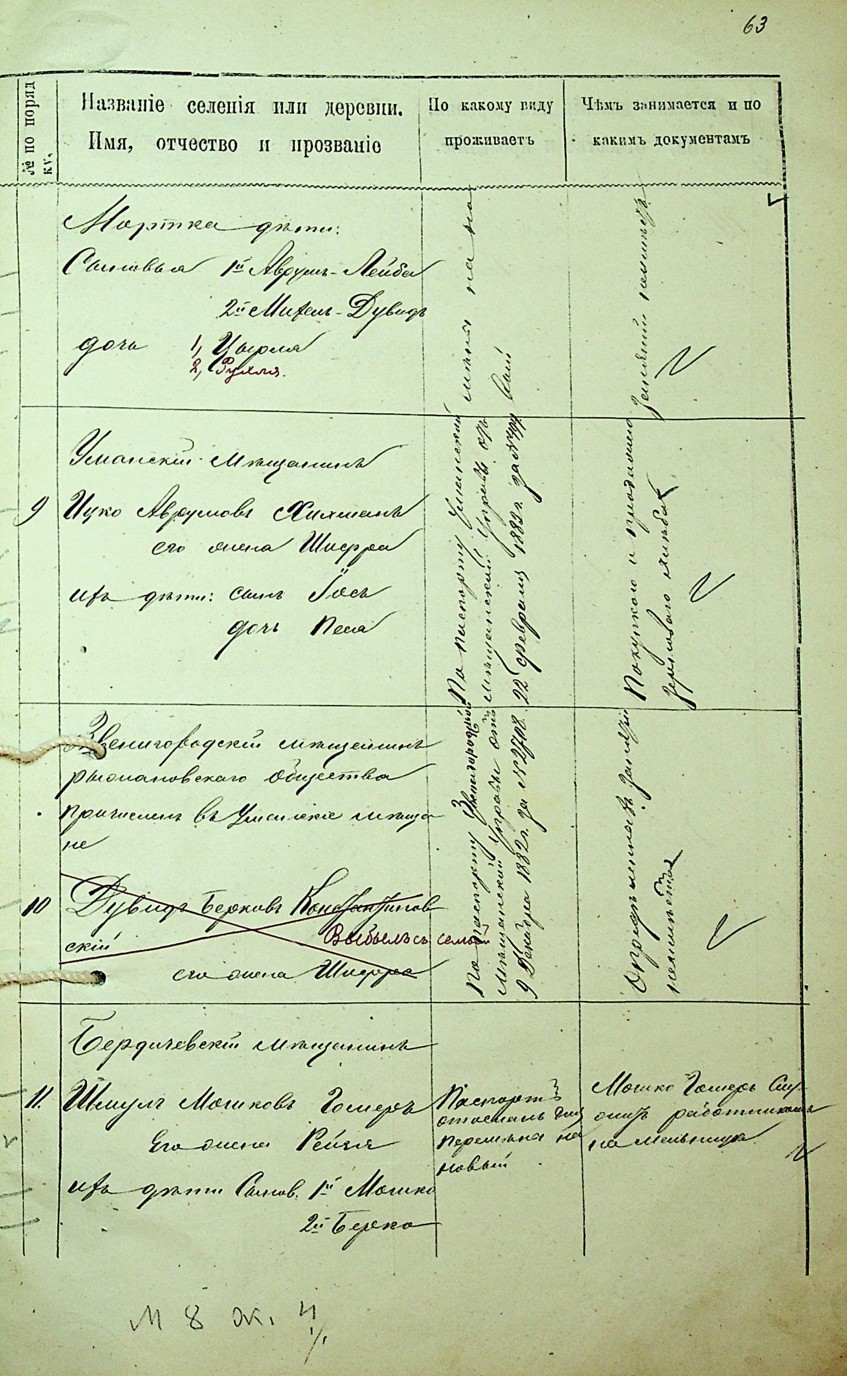 63
№ по поряд
ку.
Названіе селенія или деревни.
Имя, отчество и прозваніе
По какому виду
проживаетъ
Чѣмъ занимается и по
какимъ документамъ
Мортка дѣти:
Сыновья 1й Аврумъ-Лейба
2й Михель-Дувидъ
дочь 1, Цырля
2, Рухля.
занятій
Уманскій мѣщанинъ
9 Ицко Аврумовъ Хихманъ
его жена Шифра
ихъ дѣти: сынъ Іось
дочь Песя
По паспорту Уманской
мѣщанской Управы отъ
22 февраля 1883 г. за №
Покупкою и продажею
зерноваго хлѣба
Звенигородскій мѣщанинъ
рыжановскаго общества
причисленъ въ Уманскіе мѣща
не
10 Дувидъ Берковъ Константинов
скій
Выбылъ съ семьей
его жена Шифра
По паспорту Звенигородской
мѣщанской Управы отъ
9 Декабря 1882 г. за № 2708
Опредѣленныхъ занятій
неимѣетъ
Бердичевскій мѣщанинъ
11. Шмуль Мошковъ Гомеръ
Его жена Рейзя
ихъ дѣти Сынов. 1й Мошко
2й Берко
Паспортъ
отосланъ для
перемѣна на
новый
Мошко Гомеръ Слу
житъ работникомъ
на мельницѣ
М 8 Ж. 4